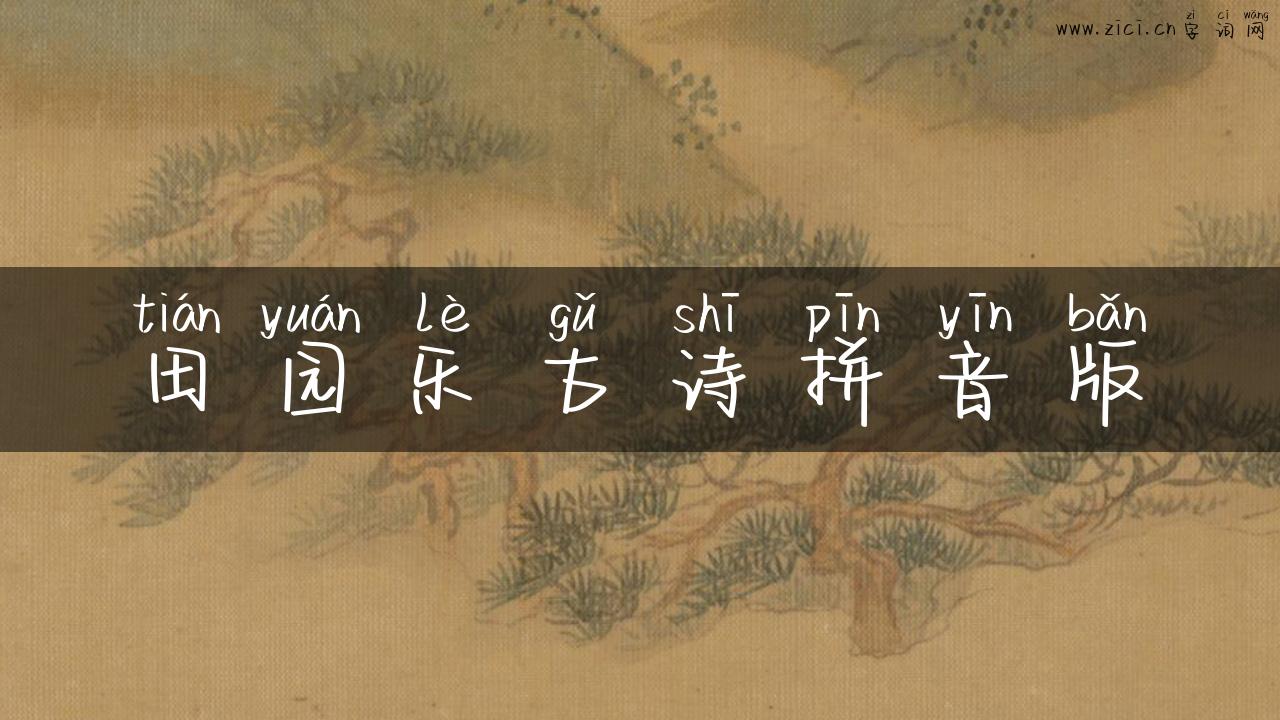 zì cí wǎng
www.zici.cn 字 词 网
tián yuán lè gǔ shī pīn yīn bǎn
田 园 乐 古 诗 拼 音 版